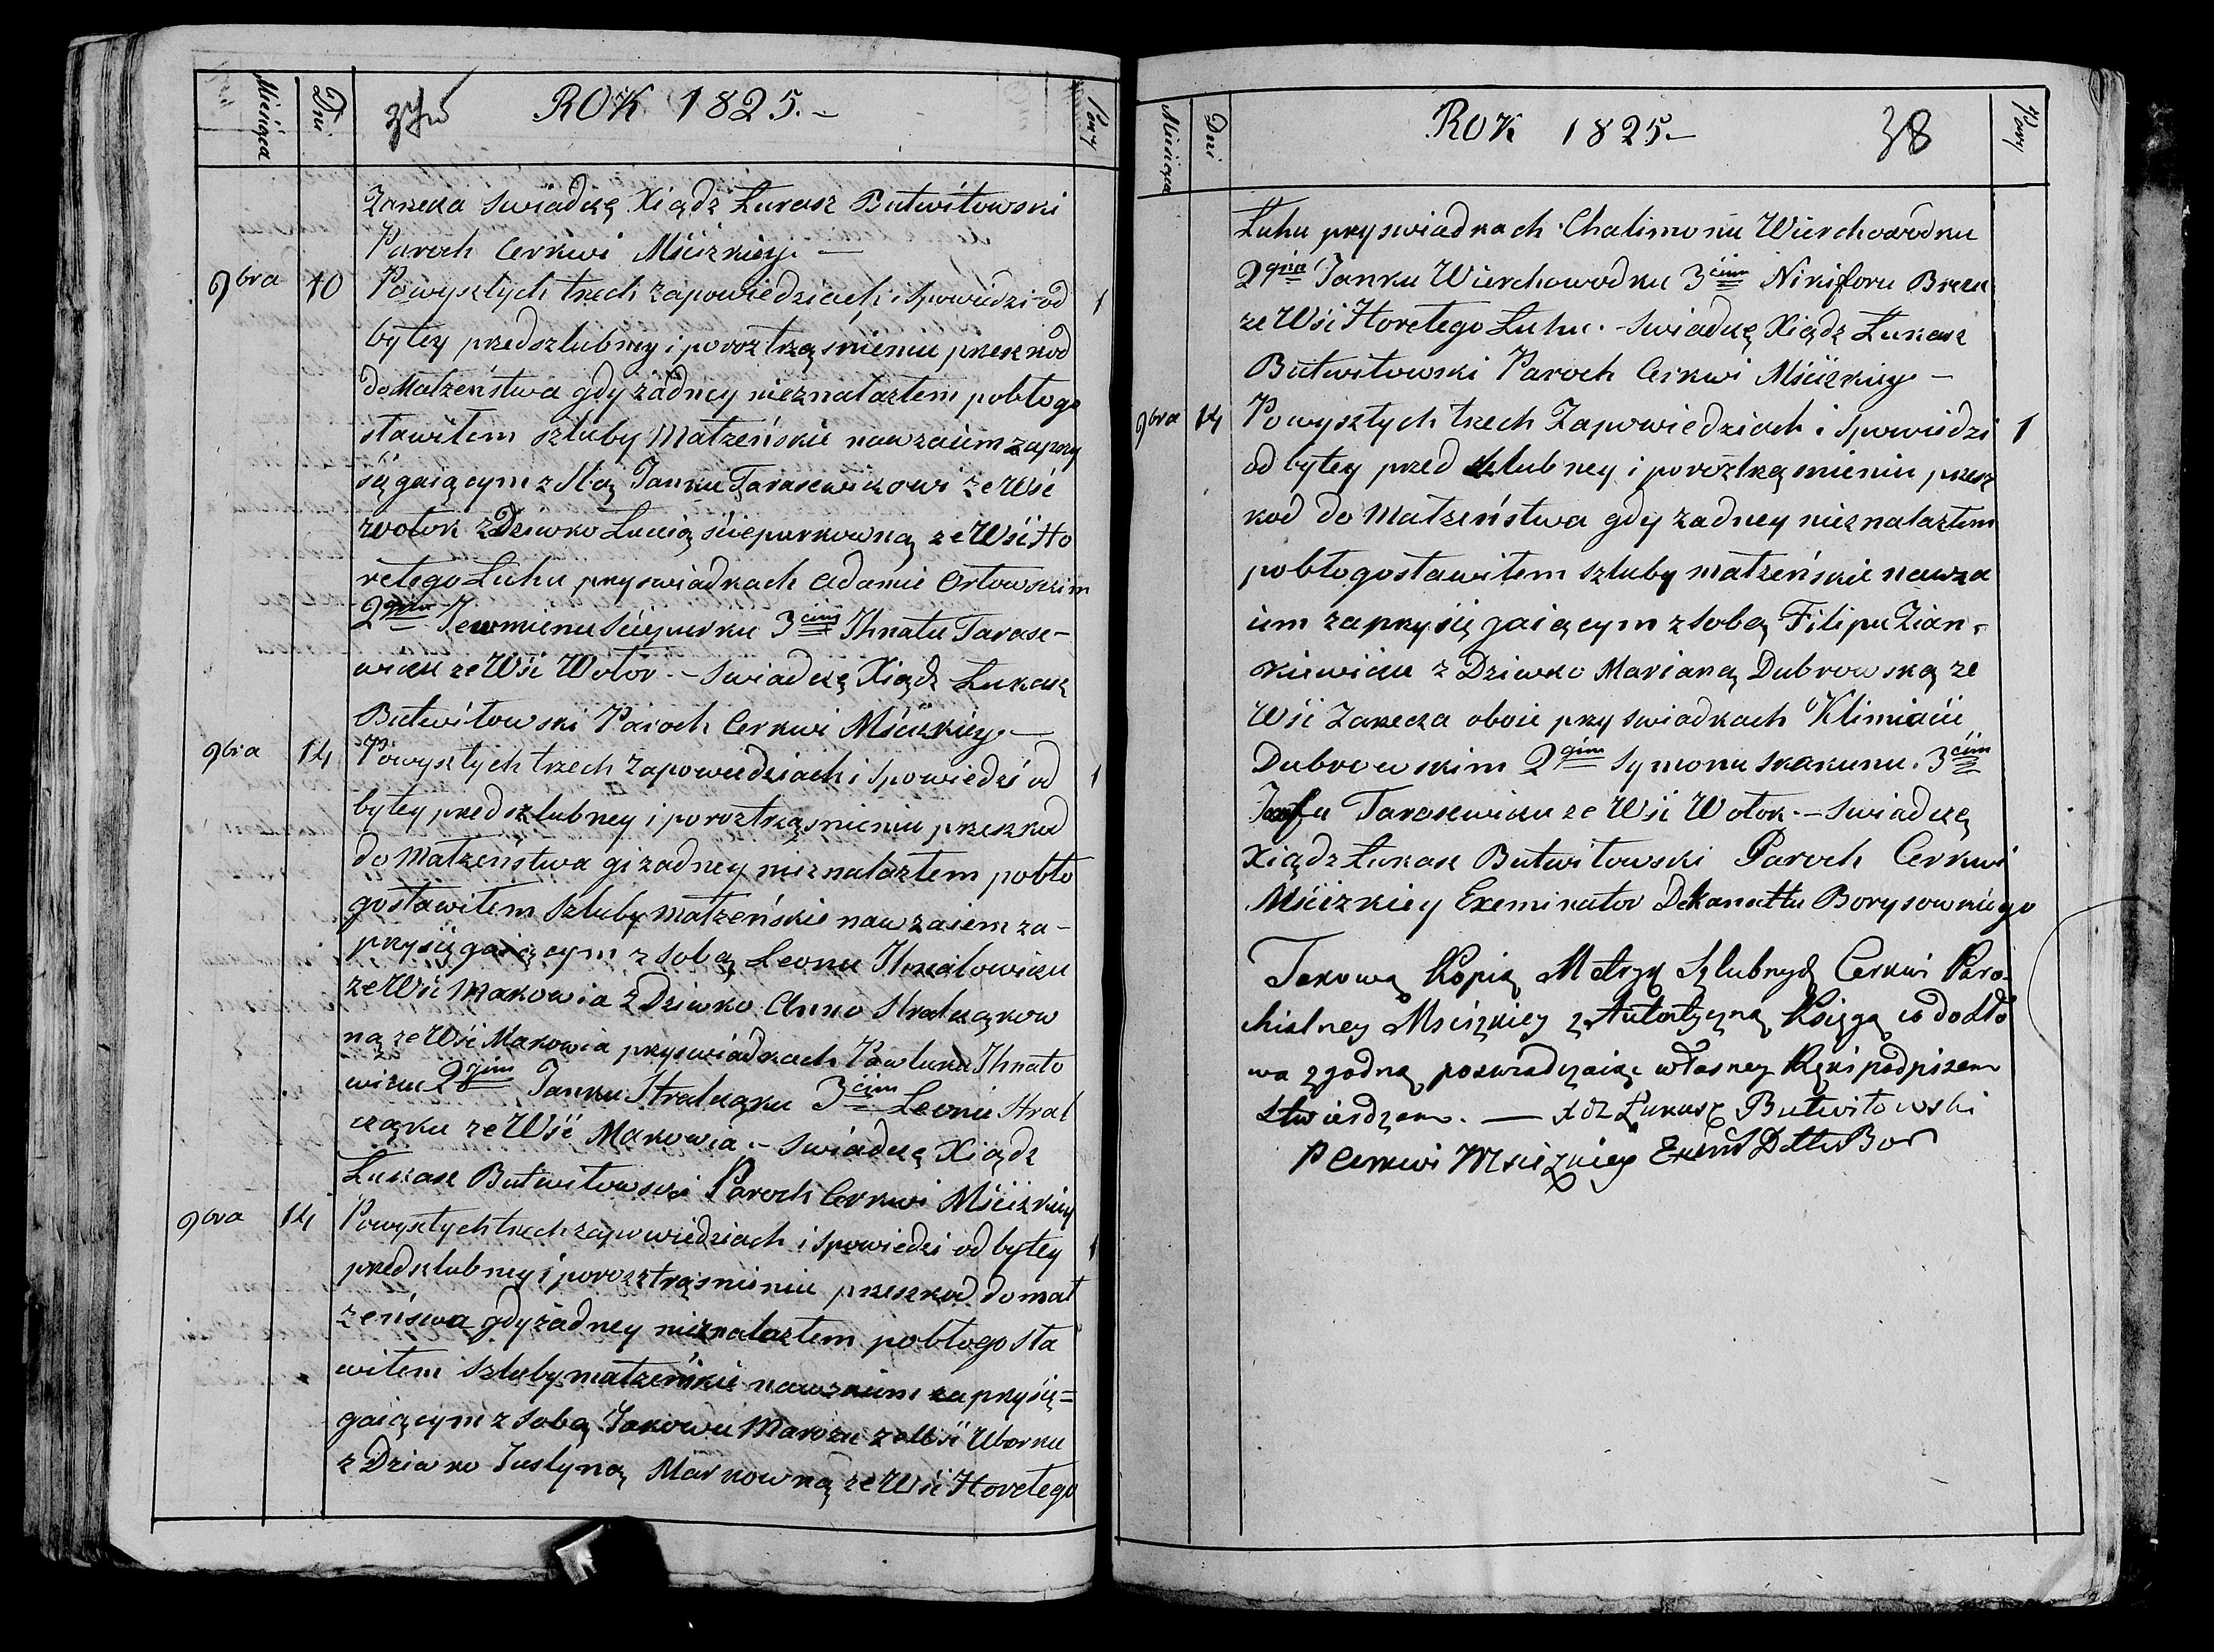 Miesiąca Dni ROK 1825.- Pary
Zarzecza swiadczę Xiądz Łukasz Butwiłowski
Paroch Cerkwi Mścizkiey. —
9bra 10 Powyszłych trzech zapowiedziach i spowiedzi od 1
byłey przedszlubney i poroztrząśnieniu przeszkod
do Małzeństwa gdy żadney nieznalazłem pobłogo
sławiłem szluby Małzeńskie nawzaiem zaprzy
sięgaiącym z Sobą Janku Tarasewiczowi ze Wsi
wołok z Dziewko Lucią ściepurkowną ze Wśi Ho
rełego Luhu przyswiadkach Adamie Orłowskim
2gim Jewmienu Ściepurku 3cim Ihnatu Tarase-
wiczu ze Wśi Wołok. - Swiadczę Xiądz Łukasz
Butwiłowski Paroch Cerkwi Mścizkiey. —
9bra 14 Powyszłych trzech zapowiedziach i spowiedzi od 1
byłey przedszlubney i poroztrząśnieniu przeszkod
do Małzeństwa gi żadney nieznalazłem pobło
gosławiłem Szluby małzeńskie nawzaiem za-
przysięgaiącym z sobą Leonu Ihnatowiczu
ze Wśi Makowia z Dziewko Anno Stralcząkow
ną ze Wśi Makowia przyswiadkach Pawluku Ihnato
wiczu 2gim Janku Stralcząku 3cim Leonie Stral
cząku ze Wśi Makowia. - Swiadczę Xiądz
Łukasz Butwiłowski Paroch Cerkwi Mścizkiey
9bra 14 Powyszłych trzech zapowiedziach i spowiedzi odbyłey 1
przedszlubney i porozztrząśnieniu przeszkod do mał
żeńswa gdy żadney nieznalazłem pobłogosła
wiłem Szluby małzeńskie nawzaiem zaprzysię=
gaiącym z sobą Jakowu Marozu ze Wśi Uborku
z Dziewko Justyną Markowną ze Wśi Horełego
Miesiąca Dni ROK 1825.- 38 Pary
Łuhu przyswiadkach Chalimonu Wierchowodku
2gim Janku Wierchowodku 3cim Nikiforu
ze Wśi Horełego Luhu. - Swiadczę Xiądz Łukasz
Butwiłowski Paroch Cerkwi Mścizkiey —
9bra 14 Powyszłych trzech Zapowiedziach i spowiedzi 1
odbyłey przed szlubney i poroztrząśnieniu przesz
kod do Małzeństwa gdy żadney nieznalazłem
pobłogosławiłem szluby małzeńskie nawza
iem zaprzysięgaiącym z sobą Filipu Zian-
kiewiczu z Dziewko Marianą Dubrowską ze
Wśi Zarecza oboie przyswiadkach Klimiacie
Dubrowskim 2gim Symonu Skakunu. 3cim
Tarasewiczu ze Wśi Wołok. - Swiadczę
Xiądz Łukasz Butwiłowski Paroch Cerkwi
Mścizkiey Exeminator Dekanattu Borysowskiego
Takową Kopią Metryk Szlubnych Cerkwi Paro-
chialney Mscizkiey z Autentyczną Księgą co do sło
wa zgodną poswiadczaiąc własney Ręki podpisem
stwierdzam. — Xdz Łukasz Butwiłowski
P Cerkwi Mscizkiey Exam Dttu Bor